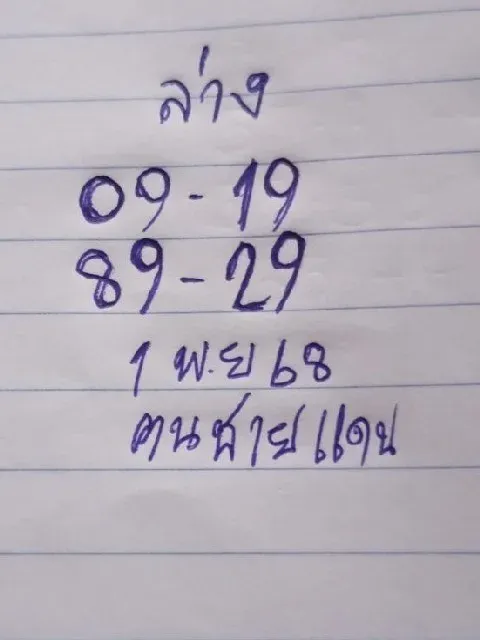 ล่าง
09-19
89-29
1 พ.ย 68
ฅนชายแดน